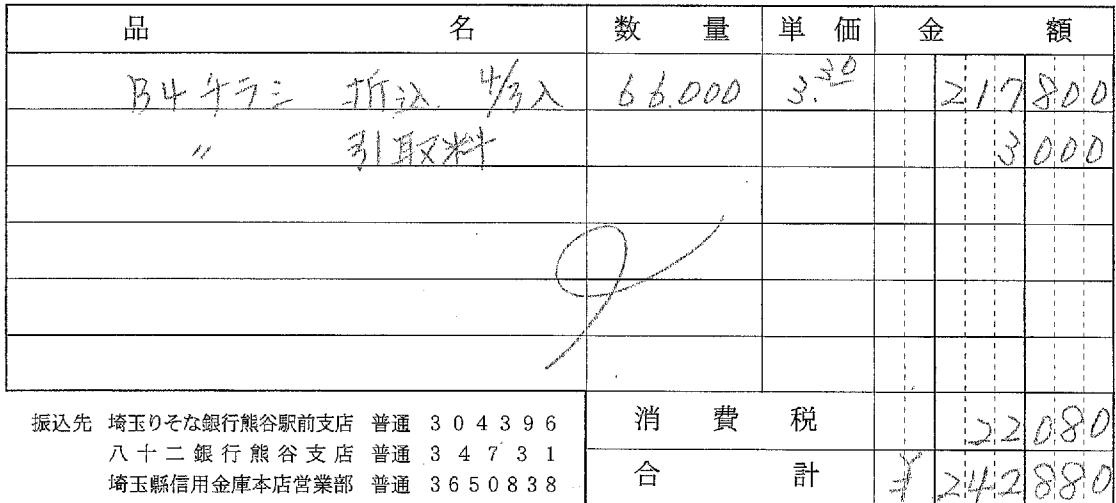 品名 数量 単価 金額
B4チラシ 折込 4/3入 66.000 3.30 217800
〃 引取料 3000
振込先 埼玉りそな銀行熊谷駅前支店 普通 304396 消費税 22080
八十二銀行熊谷支店 普通 34731
埼玉縣信用金庫本店営業部 普通 3650838 合計 ¥242880